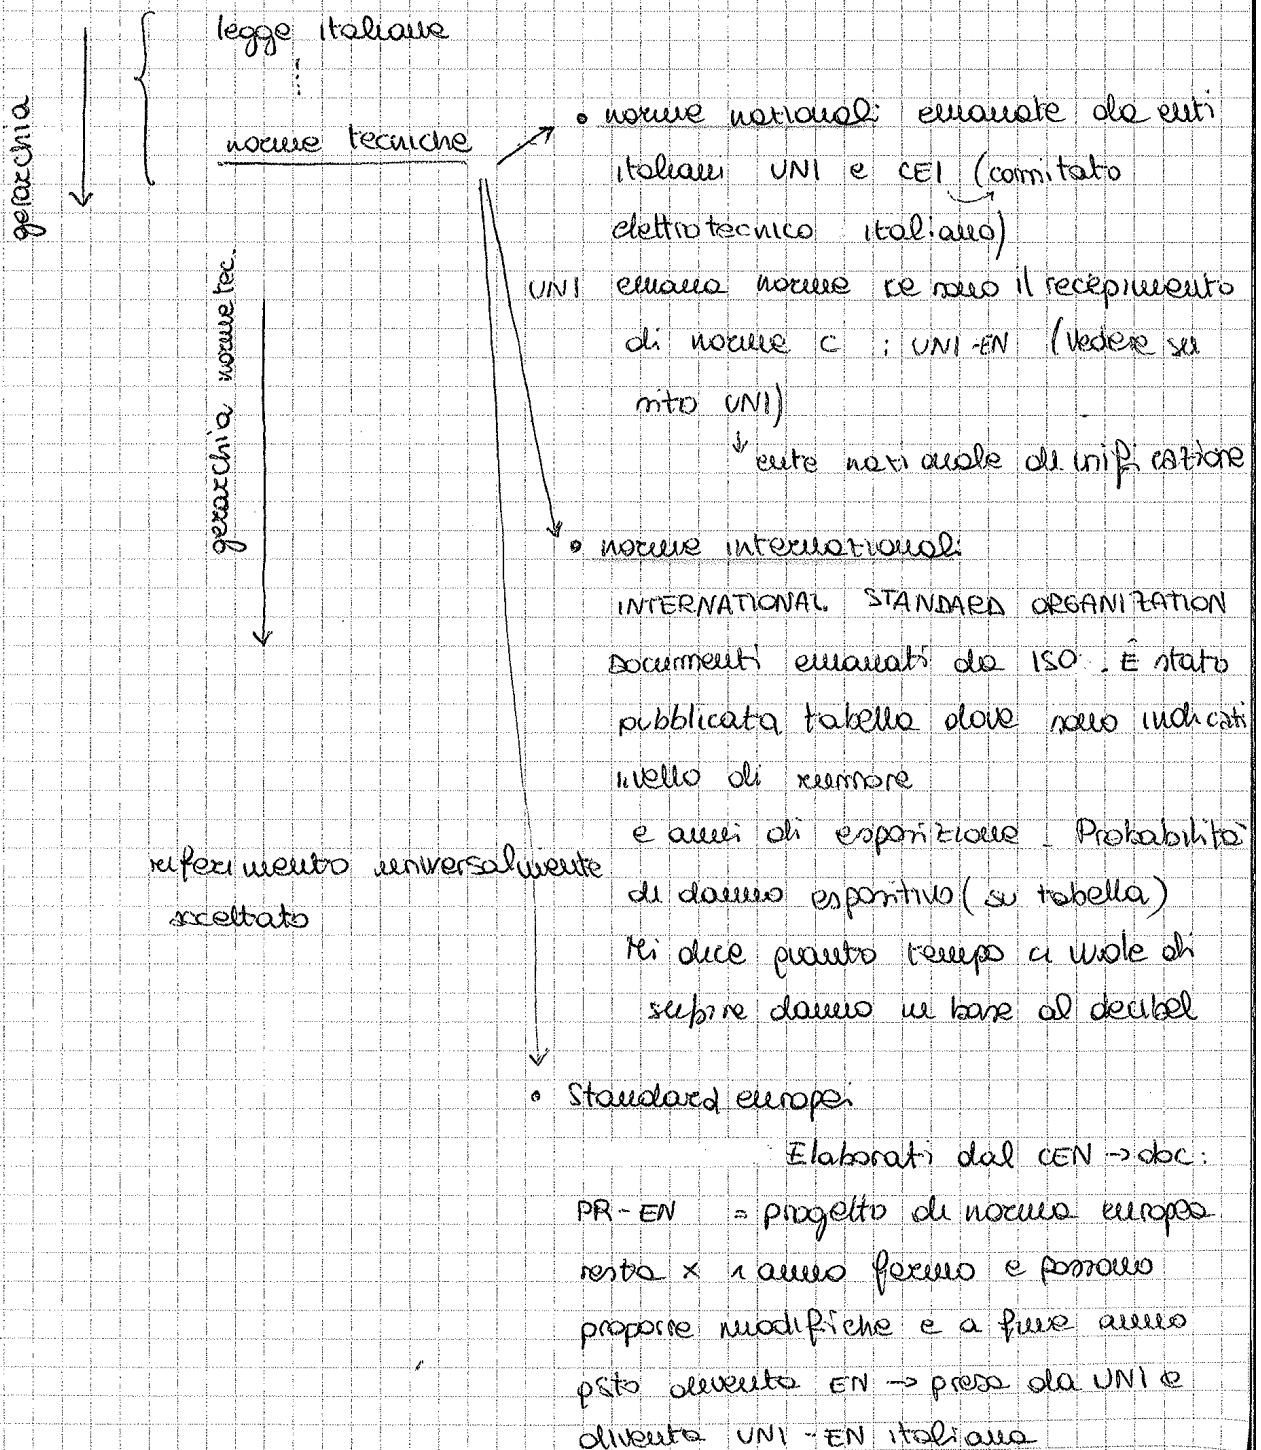 gerarchia
legge italiana
norme tecniche
gerarchia norme tec.
• norme nazionali emanate da enti
italiani UNI e CEI (comitato
elettrotecnico italiano)
UNI emana norme ce sono il recepimento
di norme C : UNI-EN (vedere su
sito UNI)
ente nazionale di unificazione
• norme internazionali
INTERNATIONAL STANDARD ORGANIZATION
Documenti emanati da ISO. È stato
pubblicata tabella dove sono indicati
livello di rumore
e anni di esposizione. Probabilità
di danno espositivo (su tabella)
Mi dice quanto tempo ci vuole di
subire danno in base al decibel
riferimento universalmente
accettato
• Standard europei
Elaborati dal CEN → doc:
PR-EN = progetto di norma europea
resta x 1 anno fermo e possono
proporre modifiche e a fine anno
psto diventa EN → presa da UNI e
diventa UNI-EN italiana